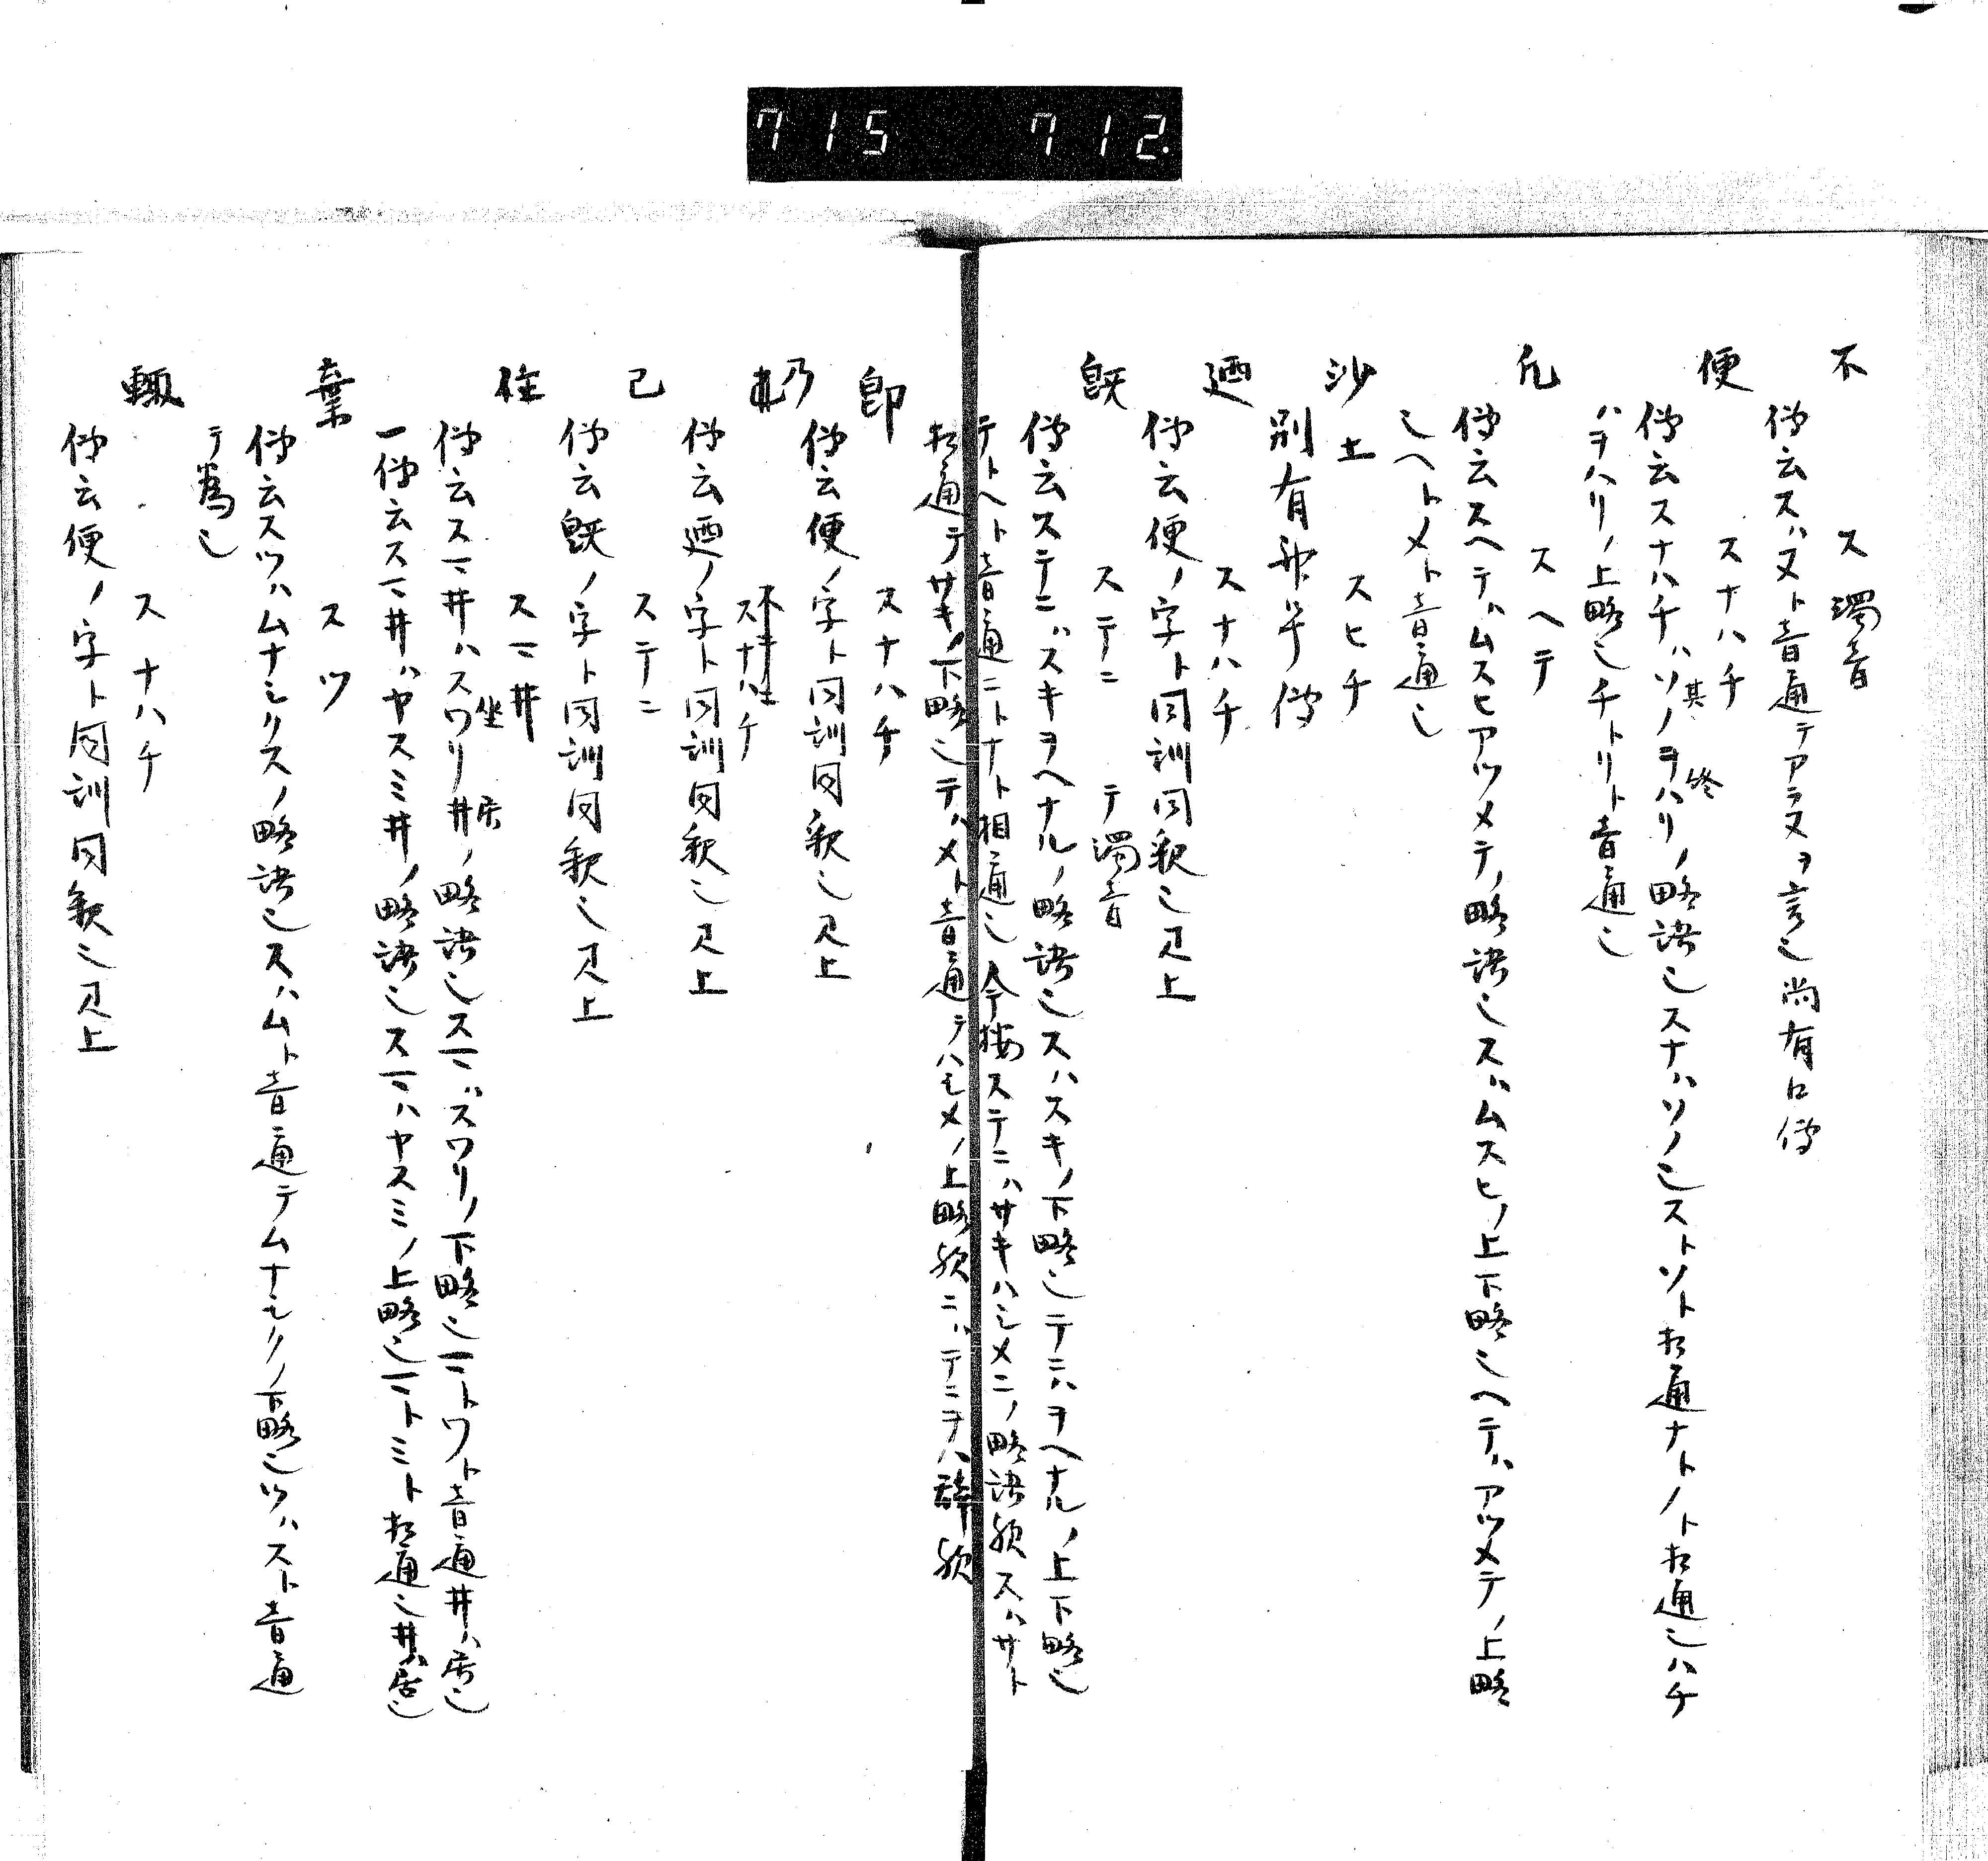 715 712.
不 ス濁音
傳云スハヌト音通テアラヌヲ言也尚有口傳
便 スナハチ
傳云スナハチハソノ其ヲハリ終ノ略語也スナハソノ也ストソト相通ナトノト相通也ハチ
ハヲハリノ上略也チトリト音通也
凡 スヘテ
傳云スヘテハムスヒアツメテノ略語也スハムスヒノ上下略也ヘテハアツメテノ上略
也ヘトメト音通也
沙土 スヒチ
別有
迺 スナハチ
傳云便ノ字ト同訓同釈也見上
既 ステニ テ濁音
傳云ステニハスキヲヘナルノ略語也スハスキノ下略也テニハヲヘナルノ上下略也
テトヘト音通ニトナト相通也今按ステニハサキハシメニノ略語歟スハサト
相通テサキノ下略也テハメト音通テハシメノ上略歟ニハテニヲハ辞歟
即 スナハチ
傳云便ノ字ト同訓同釈也見上
乃 スナハチ
傳云迺ノ字ト同訓同釈也見上
已 ステニ
傳云既ノ字ト同訓同釈也見上
住 スマ井
傳云スマ井ハスワリ坐井居ノ略語也スマハスワリノ下略也マトワト音通井ハ居也
一傳云スマ井ハヤスミ井ノ略語也スマハヤスミノ上略也マトミト相通也井ハ居也
棄 スツ
傳云スツハムナシクスノ略語也スハムト音通テムナシクノ下略也ツハスト音通
テ為也
輙 スナハチ
傳云便ノ字ト同訓同釈也見上